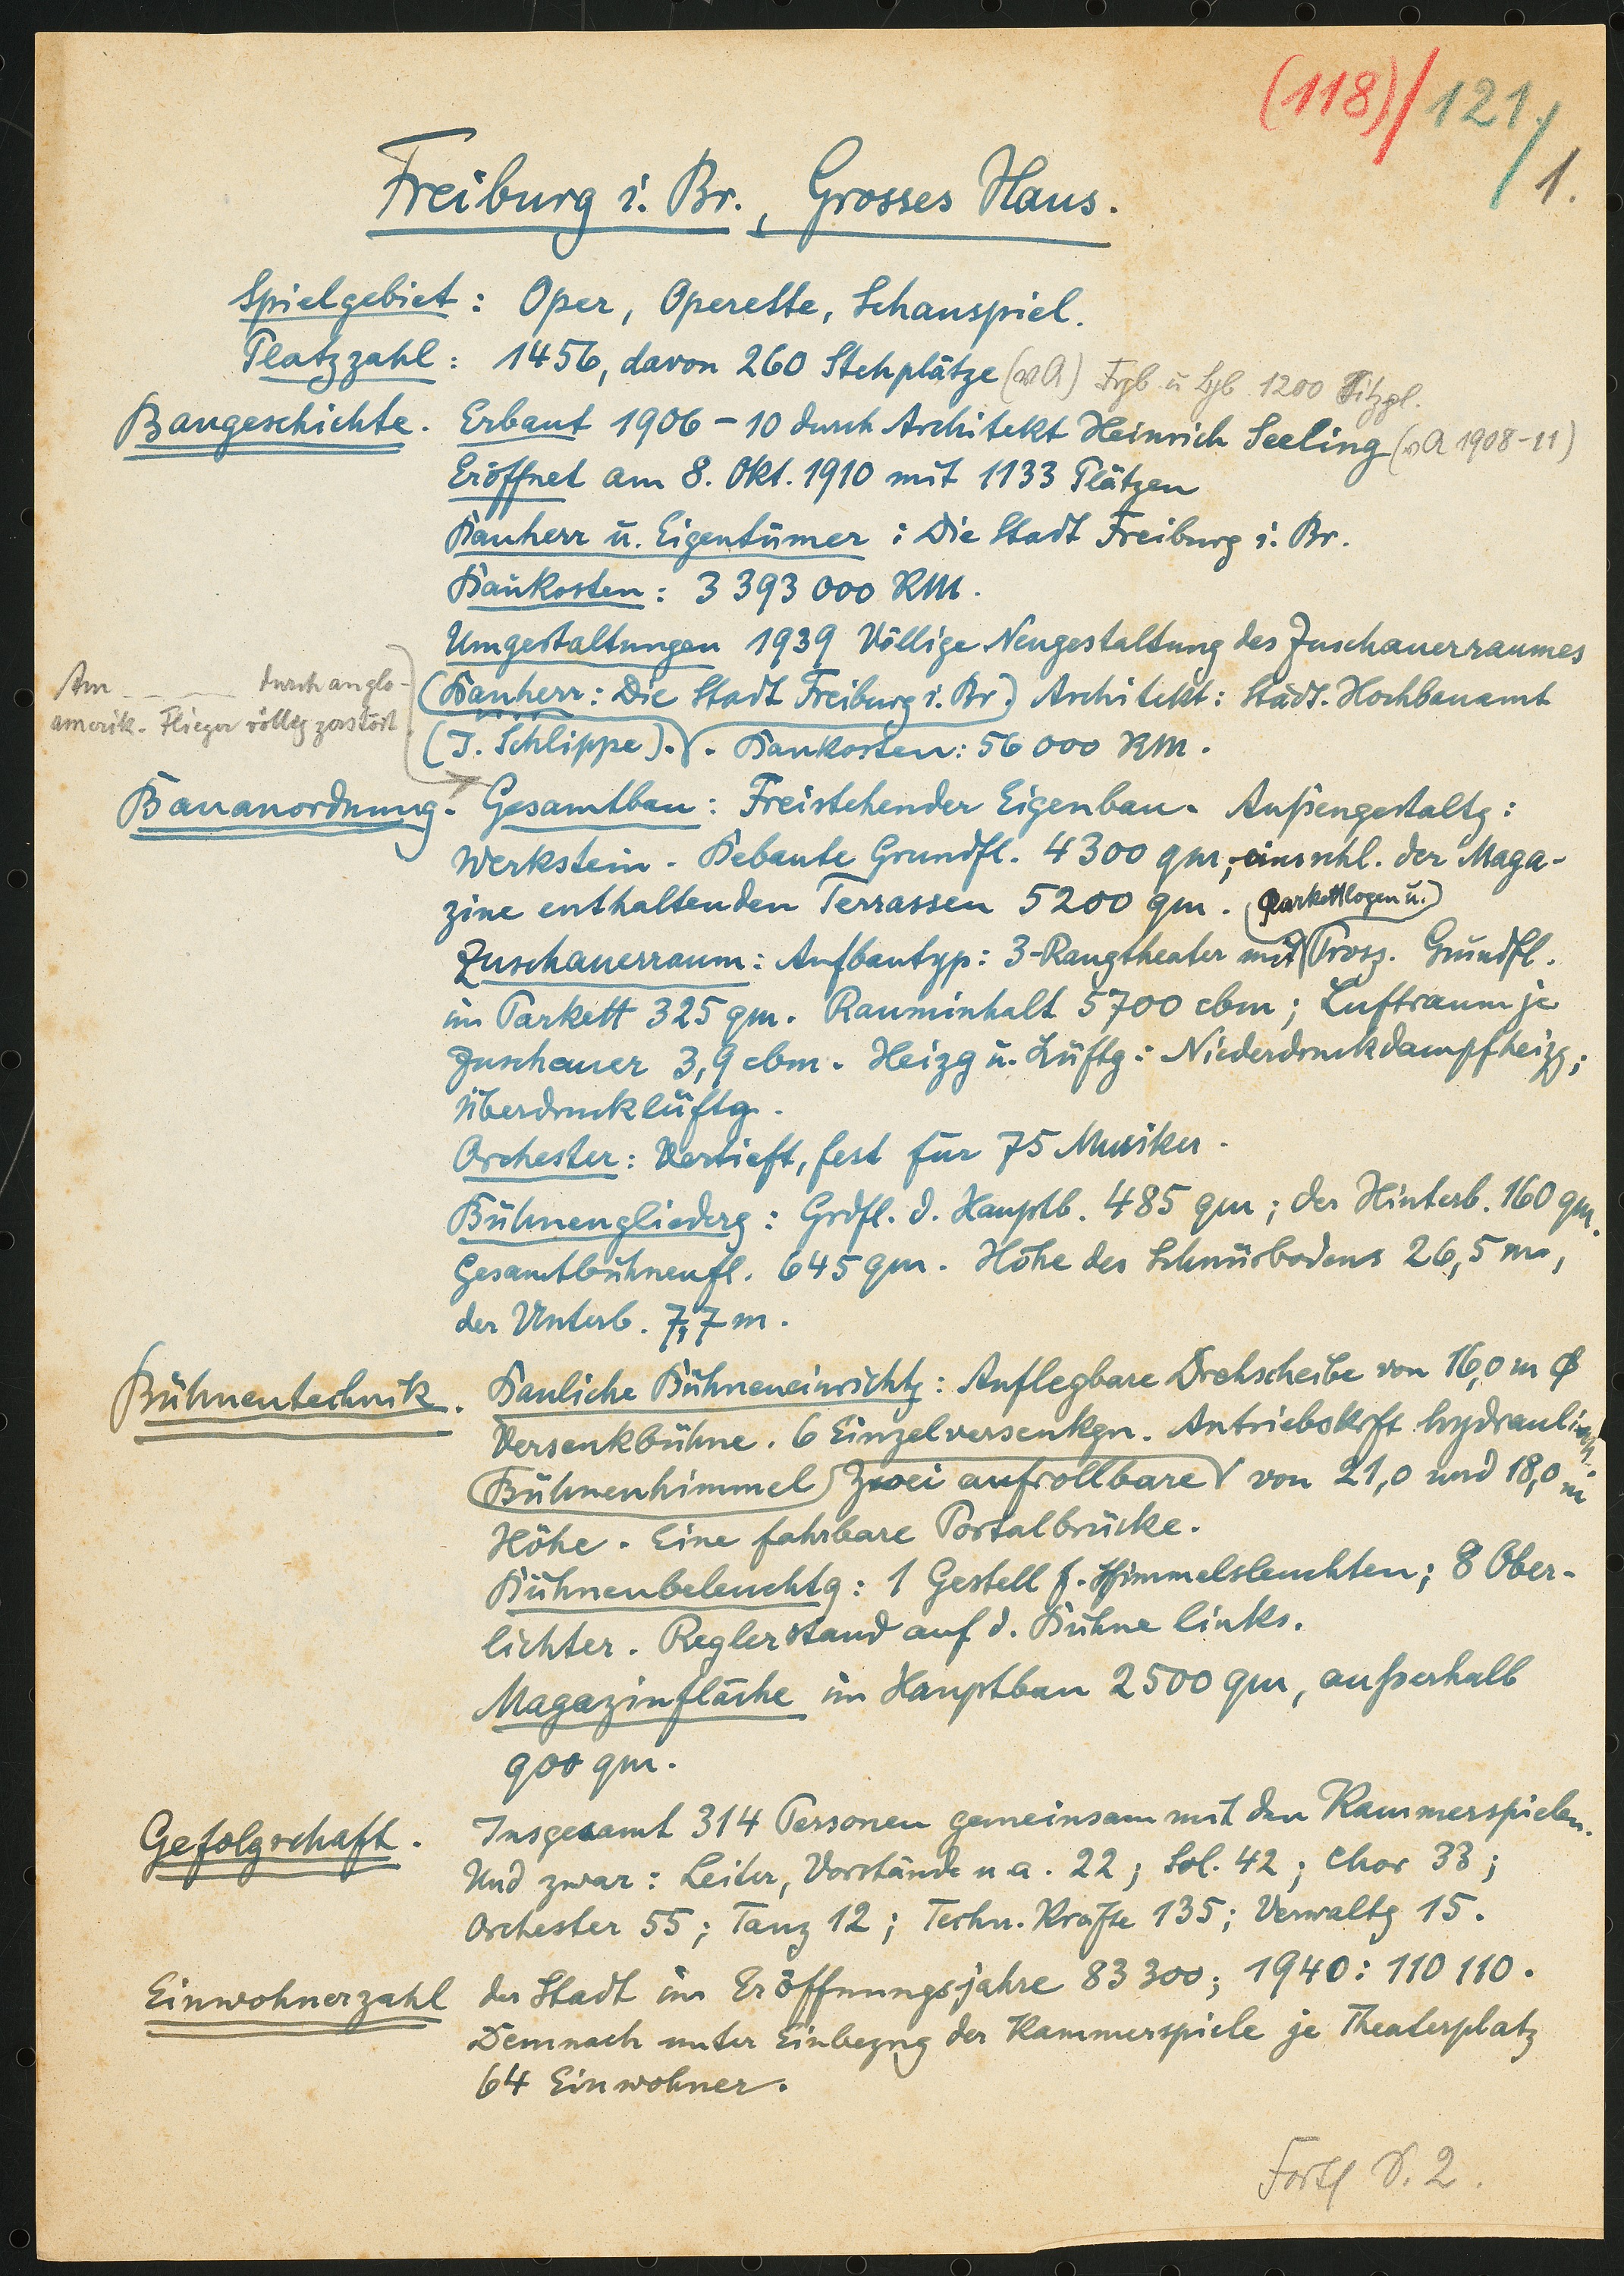 (118)/121./1.
Freiburg i. Br., Grosses Haus.
Spielgebiet: Oper, Operette, Schauspiel.
Platzzahl: 1456, davon 260 Stehplätze (vA) 1200 Sitzpl.
Baugeschichte. Erbaut 1906-10 durch Architekt Heinrich Seeling (vA 1908-11)
Eröffnet am 8. Okt. 1910 mit 1133 Plätzen
Bauherr u. Eigentümer: Die Stadt Freiburg i. Br.
Baukosten: 3 393 000 RM.
Umgestaltungen 1939 Völlige Neugestaltung des Zuschauerraumes
(Bauherr: Die Stadt Freiburg i. Br.) Architekt: Städt. Hochbauamt
(J. Schlippe). Baukosten: 56 000 RM.
Am _ _ _ durch anglo-
amerik. Flieger völlig zerstört
Bauanordnung. Gesamtbau: Freistehender Eigenbau. Außengestaltg:
Werkstein. Bebaute Grundfl. 4300 qm, einschl. der Maga-
zine enthaltenden Terrassen 5200 qm. (Parkettlogen u.)
Zuschauerraum: Aufbautyp: 3-Rangtheater mit Prosz. Grundfl.
im Parkett 325 qm. Rauminhalt 5700 cbm; Luftraum je
Zuschauer 3,9 cbm. Heizg u. Lüftg: Niederdruckdampfheizg;
Überdrucklüftg.
Orchester: Vertieft, fest für 75 Musiker.
Bühnengliederg: Grdfl. d. Hauptb. 485 qm; der Hinterb. 160 qm.
Gesamtbühnenfl. 645 qm. Höhe des Schnürbodens 26,5 m,
der Unterb. 7,7 m.
Bühnentechnik. Bauliche Bühneneinrichtg: Auflegbare Drehscheibe von 16,0 m Ø
Versenkbühne. 6 Einzelversenkgn. Antriebskrft hydraulisch.
Bühnenhimmel Zwei aufrollbare von 21,0 und 18,0 m
Höhe. Eine fahrbare Portalbrücke.
Bühnenbeleuchtg: 1 Gestell f. Himmelsleuchten; 8 Ober-
lichter. Reglerstand auf d. Bühne links.
Magazinfläche im Hauptbau 2500 qm, außerhalb
900 qm.
Gefolgschaft. Insgesamt 314 Personen gemeinsam mit den Kammerspielen.
Und zwar: Leiter, Vorstände u a. 22; Sol. 42; Chor 33;
Orchester 55; Tanz 12; Techn. Kräfte 135; Verwaltg 15.
Einwohnerzahl der Stadt im Eröffnungsjahre 83 300; 1940: 110 110.
Demnach unter Einbezug der Kammerspiele je Theaterplatz
64 Einwohner.
Forts S. 2.